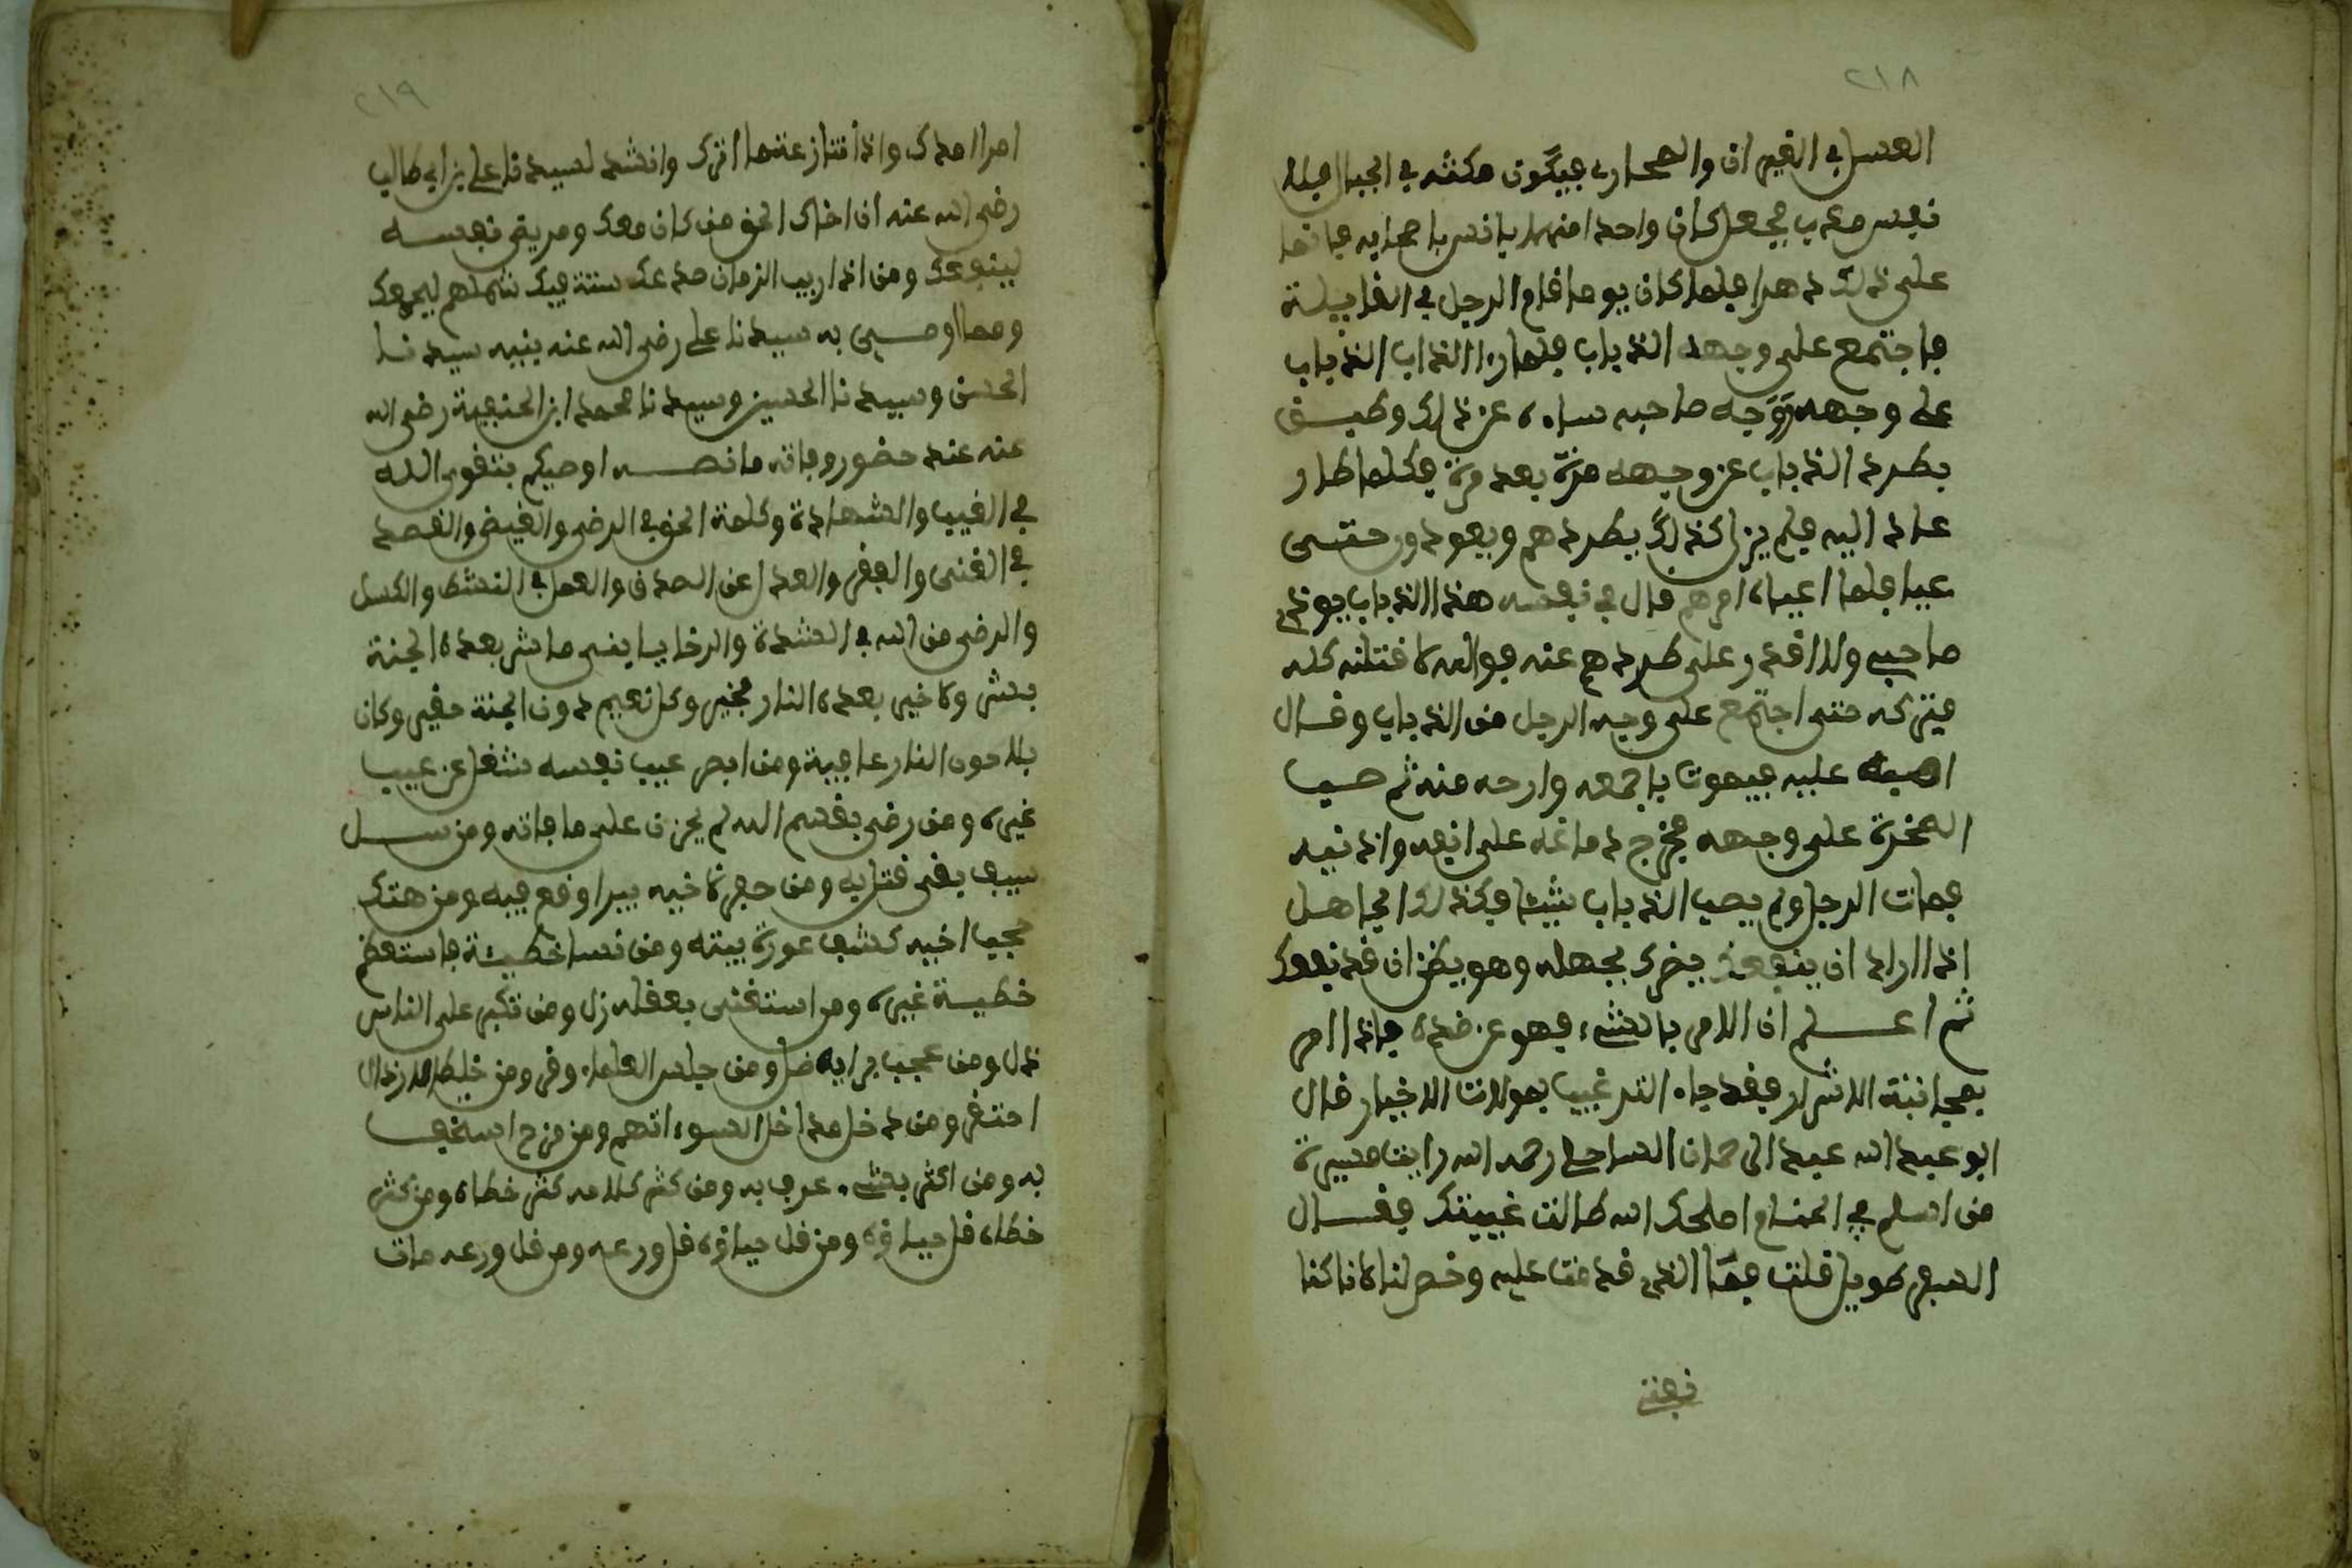 ٢١٨
العسل في الغيران والصحاري فيكون مكثه في الجبال
نفس معذب فجعل كل واحد منهما يانس بصاحبه فاقاما
على ذلك دهرا فلما كان يوما قام الرجل في القايلة
فاجتمع على وجهه الذباب فلما راا الذاب الذباب
على وجه صاحبه ساءه عن ذلك وطفق
يطرد الذباب عن وجهه مرة بعد مرة فكلما طار
عاد اليه فلم يزل كذلك يطردهم ويعودون حتى
عيا فلما اعياه امرهم قال في نفسه هذا الذباب يوذي
صاحبي ولا اقدر على طردهم عنه فوالله لاقتلنه كله
فتركه حتى اجتمع على وجه الرجل من الذباب وقال
عليه فيموت باجمعه وارحه منه ثم صب
الصخرة على وجهه فخرج دماغه على انفه واذنيه
فمات الرجل ولم يصب الذباب شيئا فكذلك الجاهل
اذا اراد ان ينفعك يضرك بجهله وهو يظن ان قد نفعك
ثم اعلم ان الامر بالشيء فهو عن ضده فاذا امر
بمجانبة الاشرار فقد جاء الترغيب بموالات الاخيار قال
ابو عبد الله عبد الرحمان الساحلي رحمه الله رايت ميسرة
من اسلم في المنام اصلحك الله طالت غيبتك فقال
السفر طويل قلت فما الذي قدمت عليه رخص لنا لانا كنا
نفتي
٢١٩
امرا امدك واذا تنازعتما اترك وانشد لسيدنا علي بن ابي طالب
رضي الله عنه ان اخاك الحق من كان معك ومن يضر نفسه
لينفعك ومن اذا ريب الزمان صدعك شتت فيك شملهم ليجمعك
ومما اوصى به سيدنا علي رضي الله عنه بنيه سيدنا
الحسن وسيدنا الحسين وسيدنا محمد ابن الحنفية رضي الله
عنه عند حضور وفاته ما نصه اوصيكم بتقوى الله
في الغيب والشهادة وكلمة الحق في الرضى والغيض والقصد
في الغنى والفقر والعدل عن الصدق والعمل في النشط والكسل
والرضى من الله في الشدة والرخا يا بني ما شر بعده الجنة
بشر ولا خير بعده النار بخير وكل نعيم دون الجنة حقير وكل
بلا دون النار عافية ومن ابصر عيب نفسه شغل عن عيب
غيره ومن رضي بقسم الله لم يحزن على ما فاته ومن سل
سيف بغى قتل به ومن حفر لاخيه بيرا وقع فيه ومن هتك
حجب اخيه كشف عورة بيته ومن نسا خطيئة فاستعظم
خطية غيره ومن استغنى بعقله زل ومن تكبر على الناس
ذل ومن عجب برايه ضل ومن جلس العلماء وقر ومن خلط الارذال
احتقر ومن دخل مداخل السوء اتهم ومن مزح استخف
به ومن اكثر بشيء عرف به ومن كثر كلامه كثر خطاه ومن كثر
خطاه قل حياؤه ومن قل حياؤه قل ورعه ومن قل ورعه مات